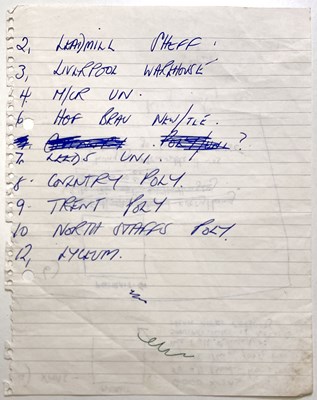 2, LEADMILL SHEFF.
3, LIVERPOOL WAREHOUSE
4. M/CR UN.
6 HOF BRAU NEW/TLE.
?
7. LEEDS UNI.
8. COVENTRY POLY.
9. TRENT POLY
10 NORTH STAFFS POLY.
12, LYCEUM.